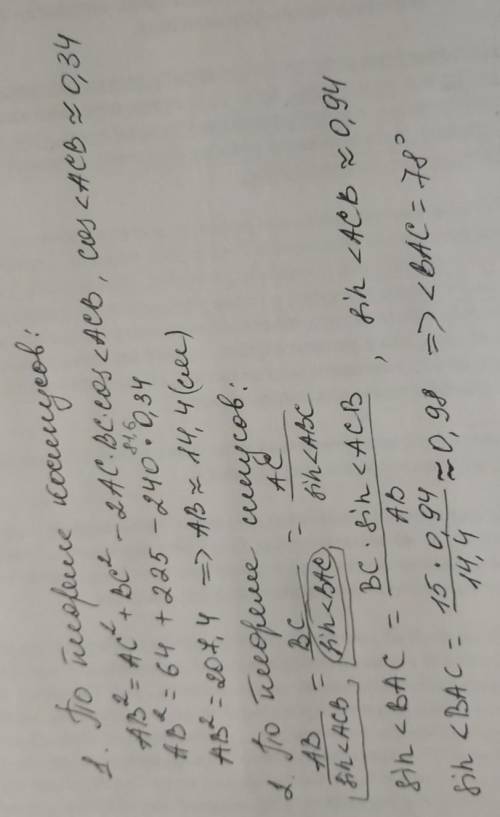 1. По теореме косинусов:
AB² = AC² + BC² - 2AC·BC·cos<ACB, cos<ACB ≈ 0,34
AB² = 64 + 225 - 240 · 0,34
81,6
AB² = 207,4 => AB ≈ 14,4 (см)
2. По теореме синусов:
AB/sin<ACB = BC/sin<BAC = AC/sin<ABC
sin<BAC = BC · sin<ACB/AB, sin<ACB ≈ 0,94
sin<BAC = 15 · 0,94/14,4 ≈ 0,98 => <BAC = 78°